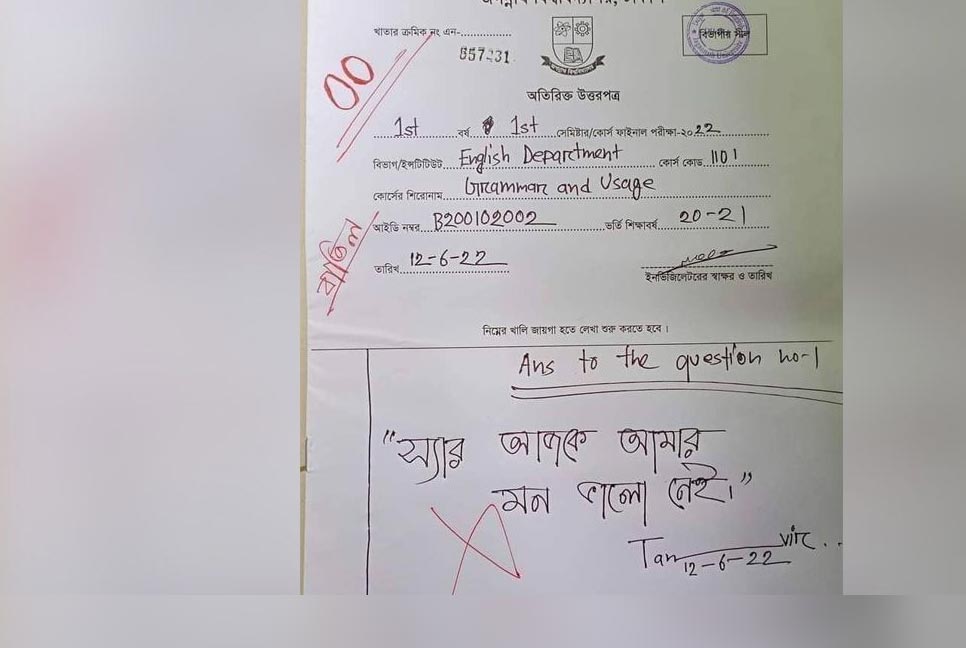 খাতার ক্রমিক নং এন-
657231
বিভাগীয় সীল
অতিরিক্ত উত্তরপত্র
00
1st বর্ষ 1st সেমিষ্টার/কোর্স ফাইনাল পরীক্ষা-২০22
বিভাগ/ইন্সটিটিউট English Department কোর্স কোড 1101
কোর্সের শিরোনাম Grammar and Usage
আইডি নম্বর B200102002 ভর্তি শিক্ষাবর্ষ 20-21
তারিখ 12-6-22
ইনভিজিলেটরের স্বাক্ষর ও তারিখ
বাতিল
নিম্নের খালি জায়গা হতে লেখা শুরু করতে হবে।
Ans to the question no-1
"স্যার আজকে আমার
মন ভালো নেই।"
Tanvir..
12-6-22